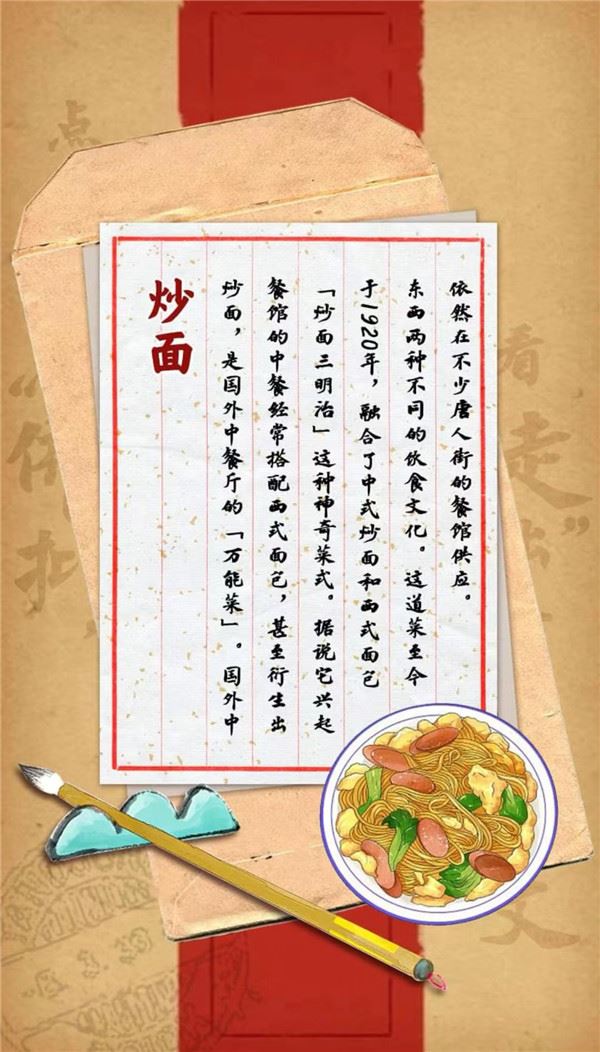 炒面
炒面，是国外中餐厅的「万能菜」。国外中
餐馆的中餐经常搭配西式面包，甚至衍生出
「炒面三明治」这种神奇菜式。据说它兴起
于1920年，融合了中式炒面和西式面包
东西两种不同的饮食文化。这道菜至今
依然在不少唐人街的餐馆供应。
点
看
走